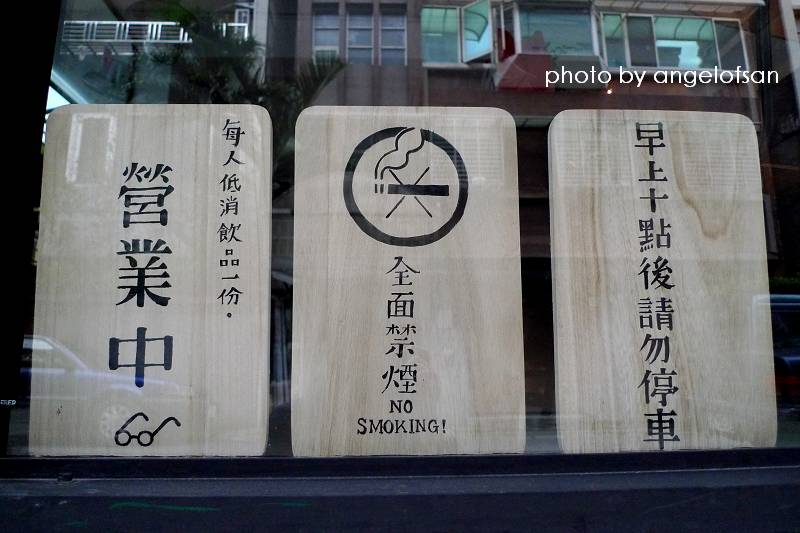 photo by angelofsan
每人低消飲品一份。
營業中
全面禁煙
NO
SMOKING!
早上十點後請勿停車